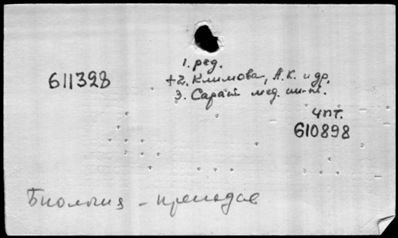 1. ред.
611328
+2. Климова, А.К. и др.
3. Сарат. мед. ин-т.
4 пт.
610898
Биология - преподав